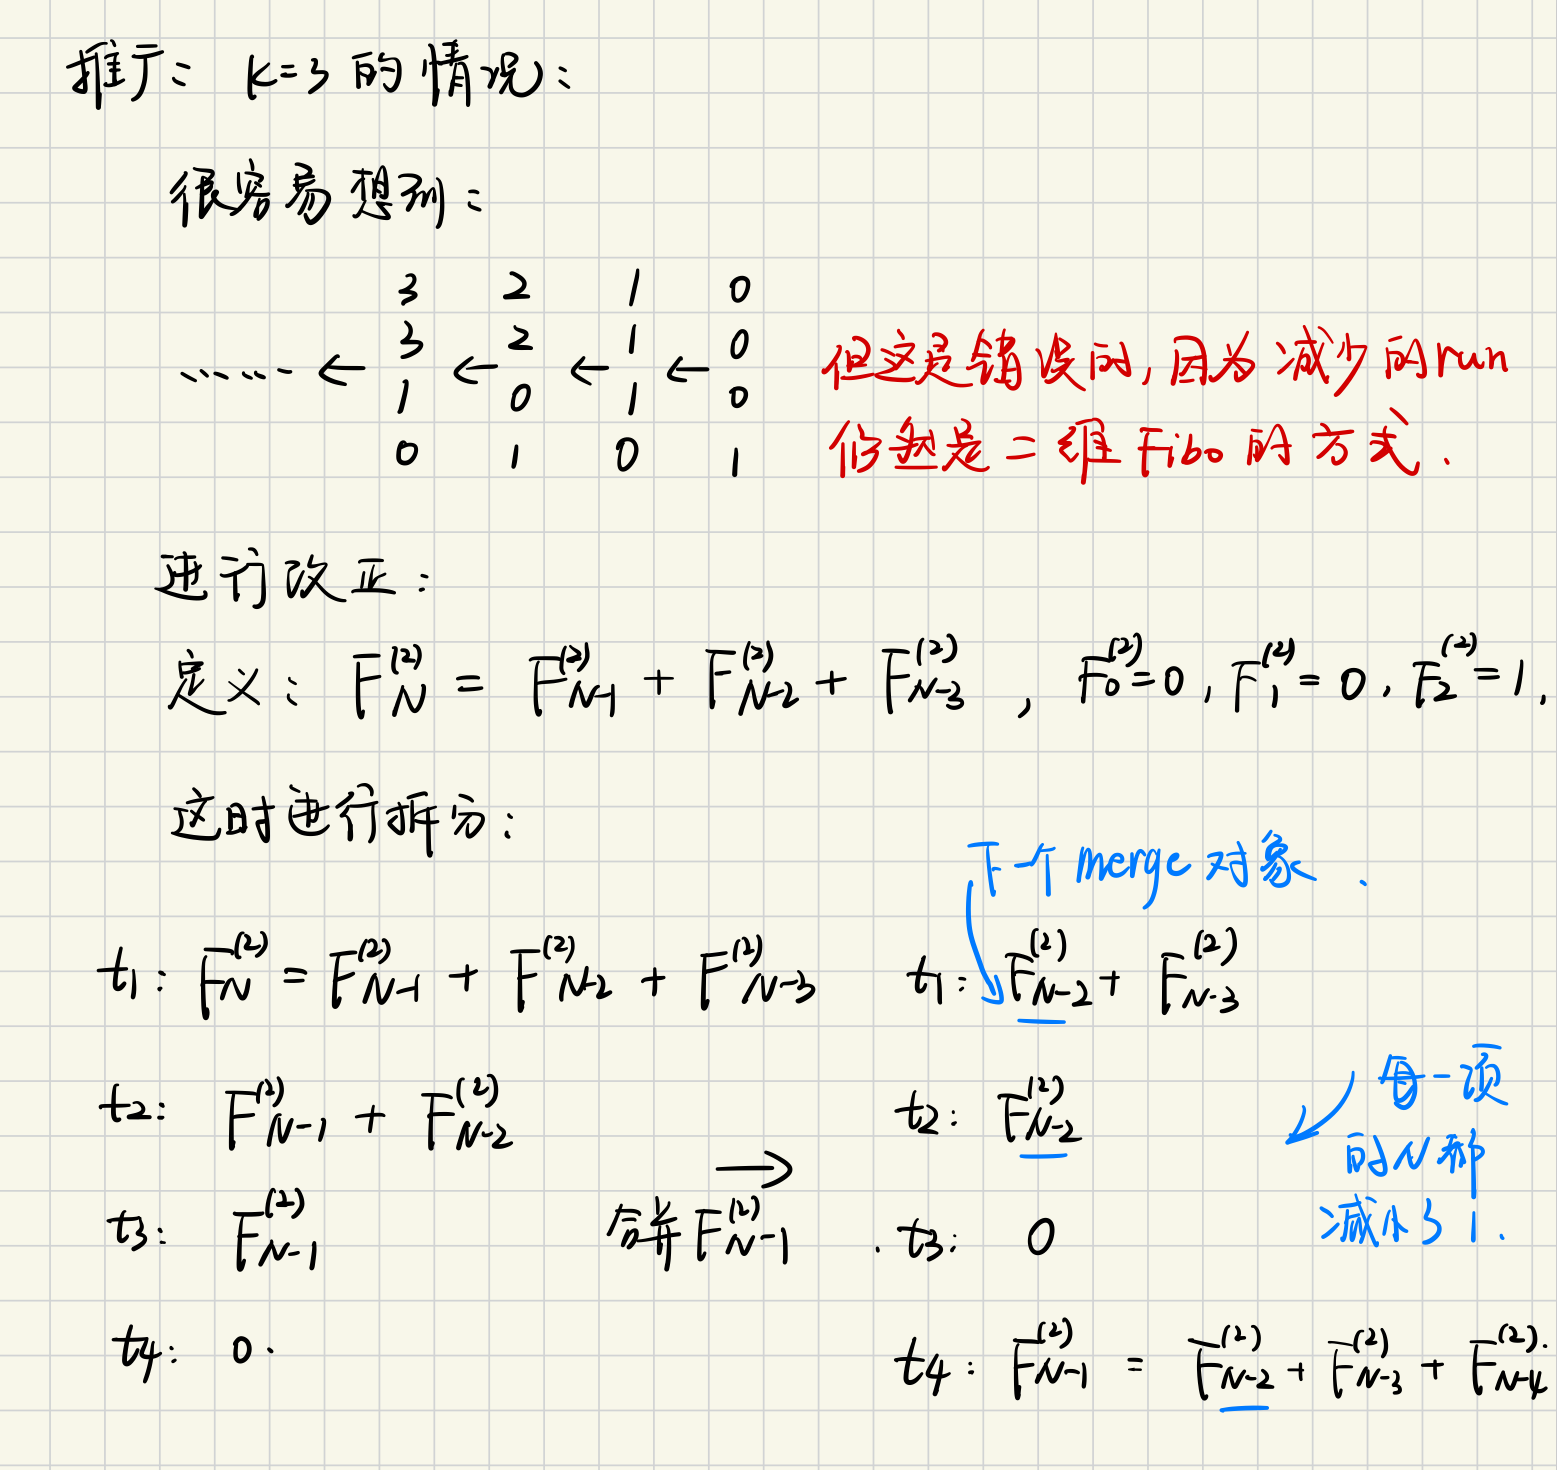 推广: K=3 的情况:
很容易想到:
3 2 1 0
3 2 1 0
...... ← ← ← ←
1 0 1 0
0 1 0 1
但这是错误的, 因为减少的run
仍然是二维 Fibo 的方式.
进行改正:
定义: F_N^(2) = F_{N-1}^(2) + F_{N-2}^(2) + F_{N-3}^(2) , F_0^(2) = 0, F_1^(2) = 0, F_2^(2) = 1.
这时进行拆分:
下一个 merge 对象.
t1: F_N^(2) = F_{N-1}^(2) + F_{N-2}^(2) + F_{N-3}^(2)
t2: F_{N-1}^(2) + F_{N-2}^(2)
t3: F_{N-1}^(2)
t4: 0.
→
合并 F_{N-1}^(2)
t1: F_{N-2}^(2) + F_{N-3}^(2)
t2: F_{N-2}^(2)
t3: 0
t4: F_{N-1}^(2) = F_{N-2}^(2) + F_{N-3}^(2) + F_{N-4}^(2).
每一项
的N都
减小了1.